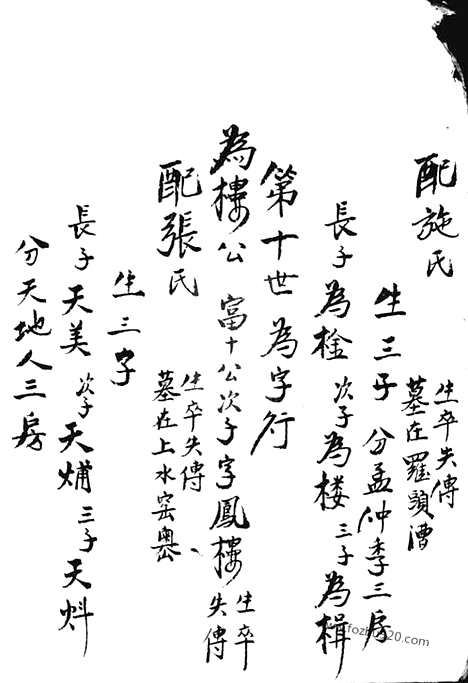 配施氏
生卒失傳
墓在羅頭漕
生三子 分孟仲季三房
長子為桧 次子為楼 三子為楫
第十世 為字行
為樓公 富十公次子字鳳樓 生卒失傳
配張氏
生卒失傳
墓在上水窑
生三子
長子天美 次子天烳 三子天炓
分天地人三房